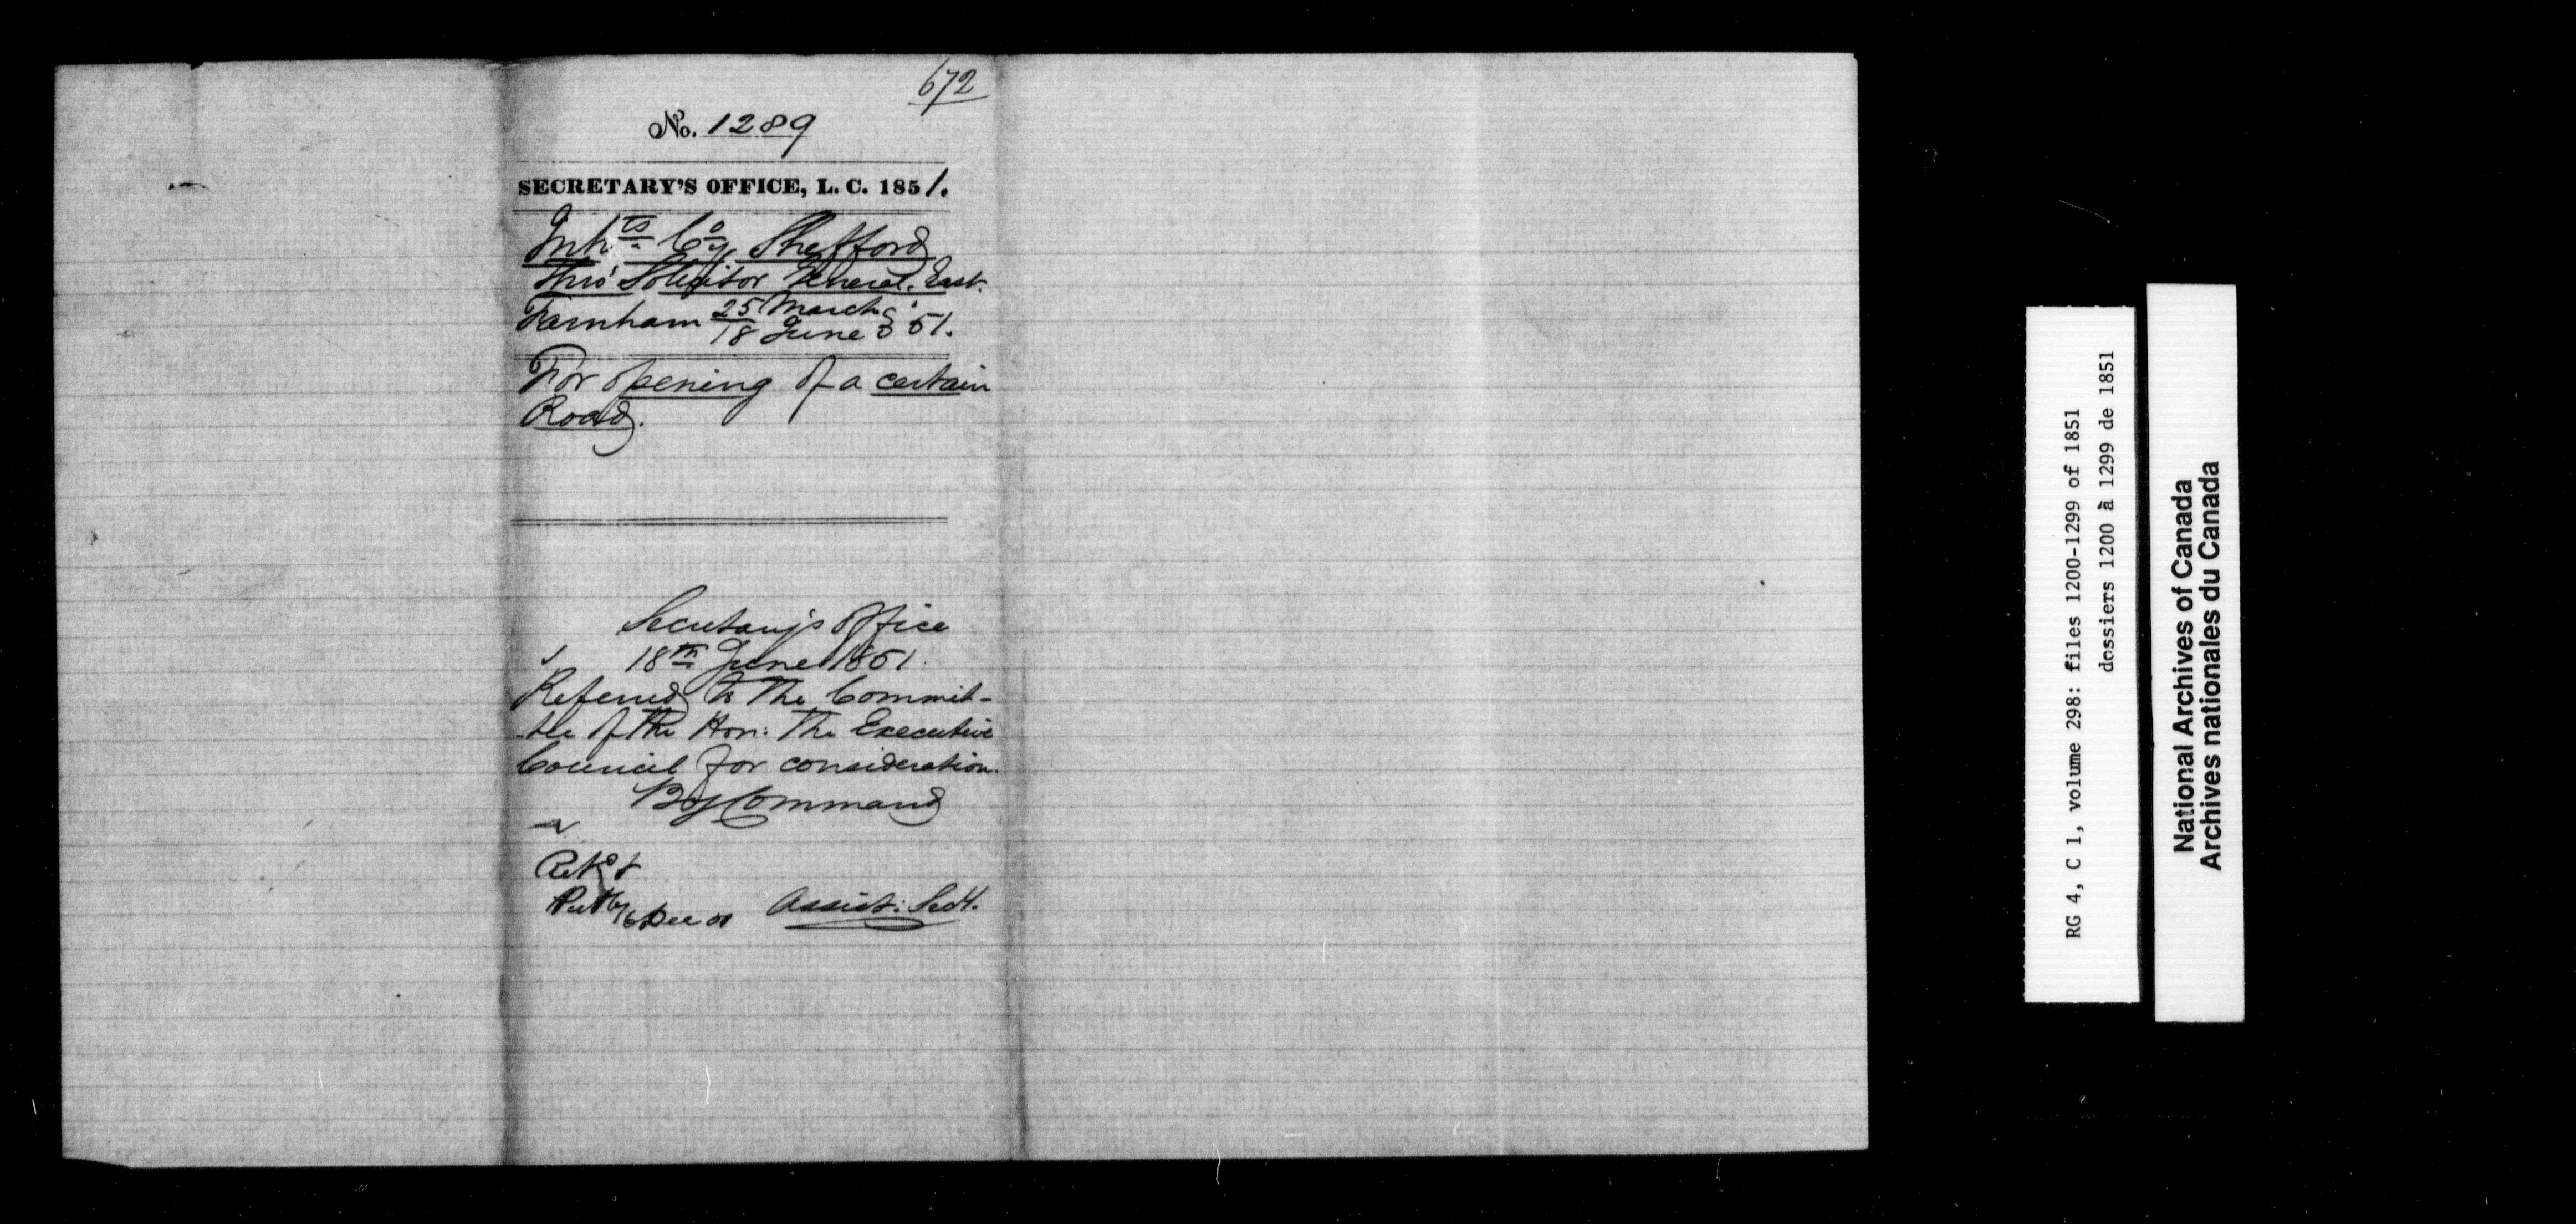 672
No. 1289
SECRETARY'S OFFICE, L. C. 1851.
Inhts Coy Shefford
Thro' Solicitor General. East.
Farnham 25 March
18 June } 51.
For opening of a certain
Road.
Secretary's Office
18th June 1851.
Referred to The Commit-
tee of the Hon: The Executive
Council for consideration.
By Command
Assist: Secy.
Put by 16 Dec 51
RG 4, C 1, volume 298: files 1200-1299 of 1851
dossiers 1200 à 1299 de 1851
National Archives of Canada
Archives nationales du Canada